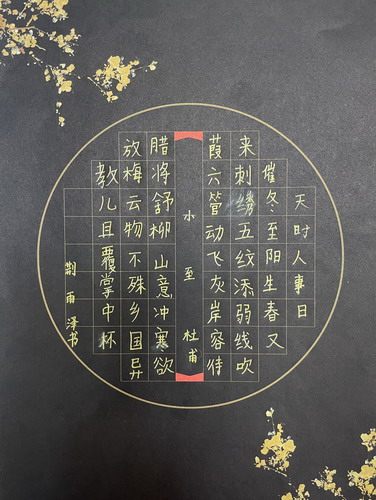 天时人事日
催冬至阳生春又
来刺绣五纹添弱线吹
葭六管动飞灰岸容待
小至
杜甫
腊将舒柳山意冲寒欲
放梅云物不殊乡国异
教儿且覆掌中杯
荆雨泽书